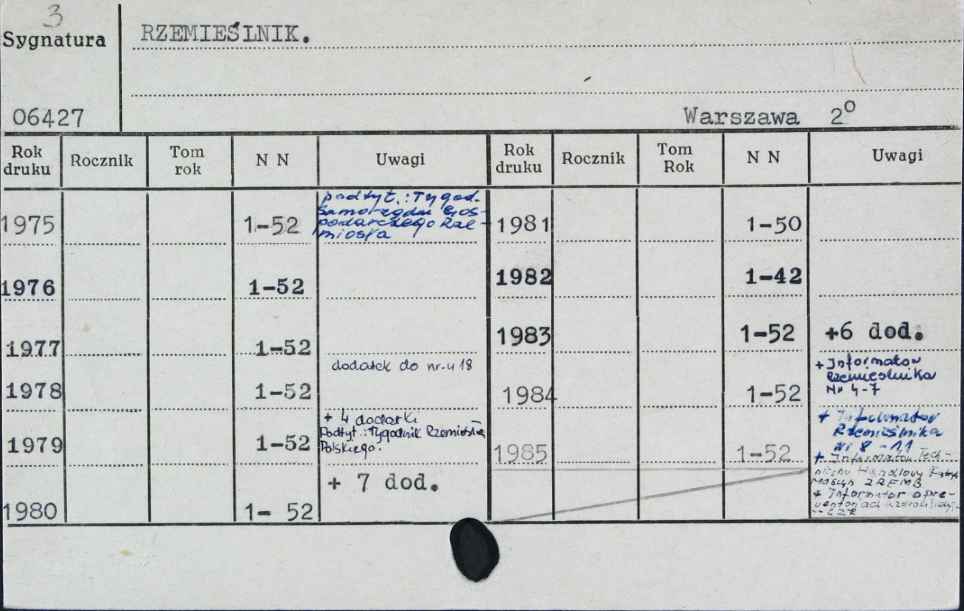 3
Sygnatura
RZEMIEŚLNIK.
06427
Warszawa 2⁰
Rok druku Rocznik Tom rok N N Uwagi Rok druku Rocznik Tom Rok N N Uwagi
podtyt.: Tygod.
Samorządu Gos-
podarczego Rze-
miosła
1975 1-52
1981 1-50
1976 1-52
1982 1-42
1977 1-52
1983 1-52 +6 dod.
dodatek do nr-u 18
1978 1-52
+ Informator
Rzemieślnika
Nr 4-7
1984 1-52
+ 4 dodatki
Podtyt.: Tygodnik Rzemiosła
Polskiego.
1979 1-52
+ Informator
Rzemieślnika
Nr 8-11
1985 1-52
+ Informator Tech-
Handlowy
Maszyn ZREMB
+ Informator o pre-
+ 7 dod.
1980 1- 52